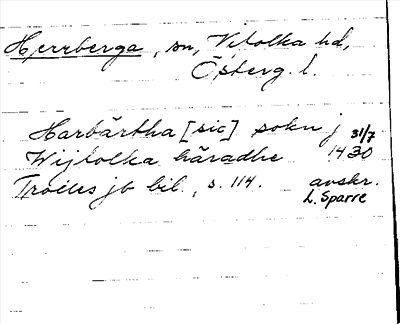 Herrberga, sn, Vifolka hd,
Österg. l.
Harbärtha [sic] sokn j 31/7
Wijfolka häradhe 1430
Troilus jb bil., s. 114. avskr.
L. Sparre